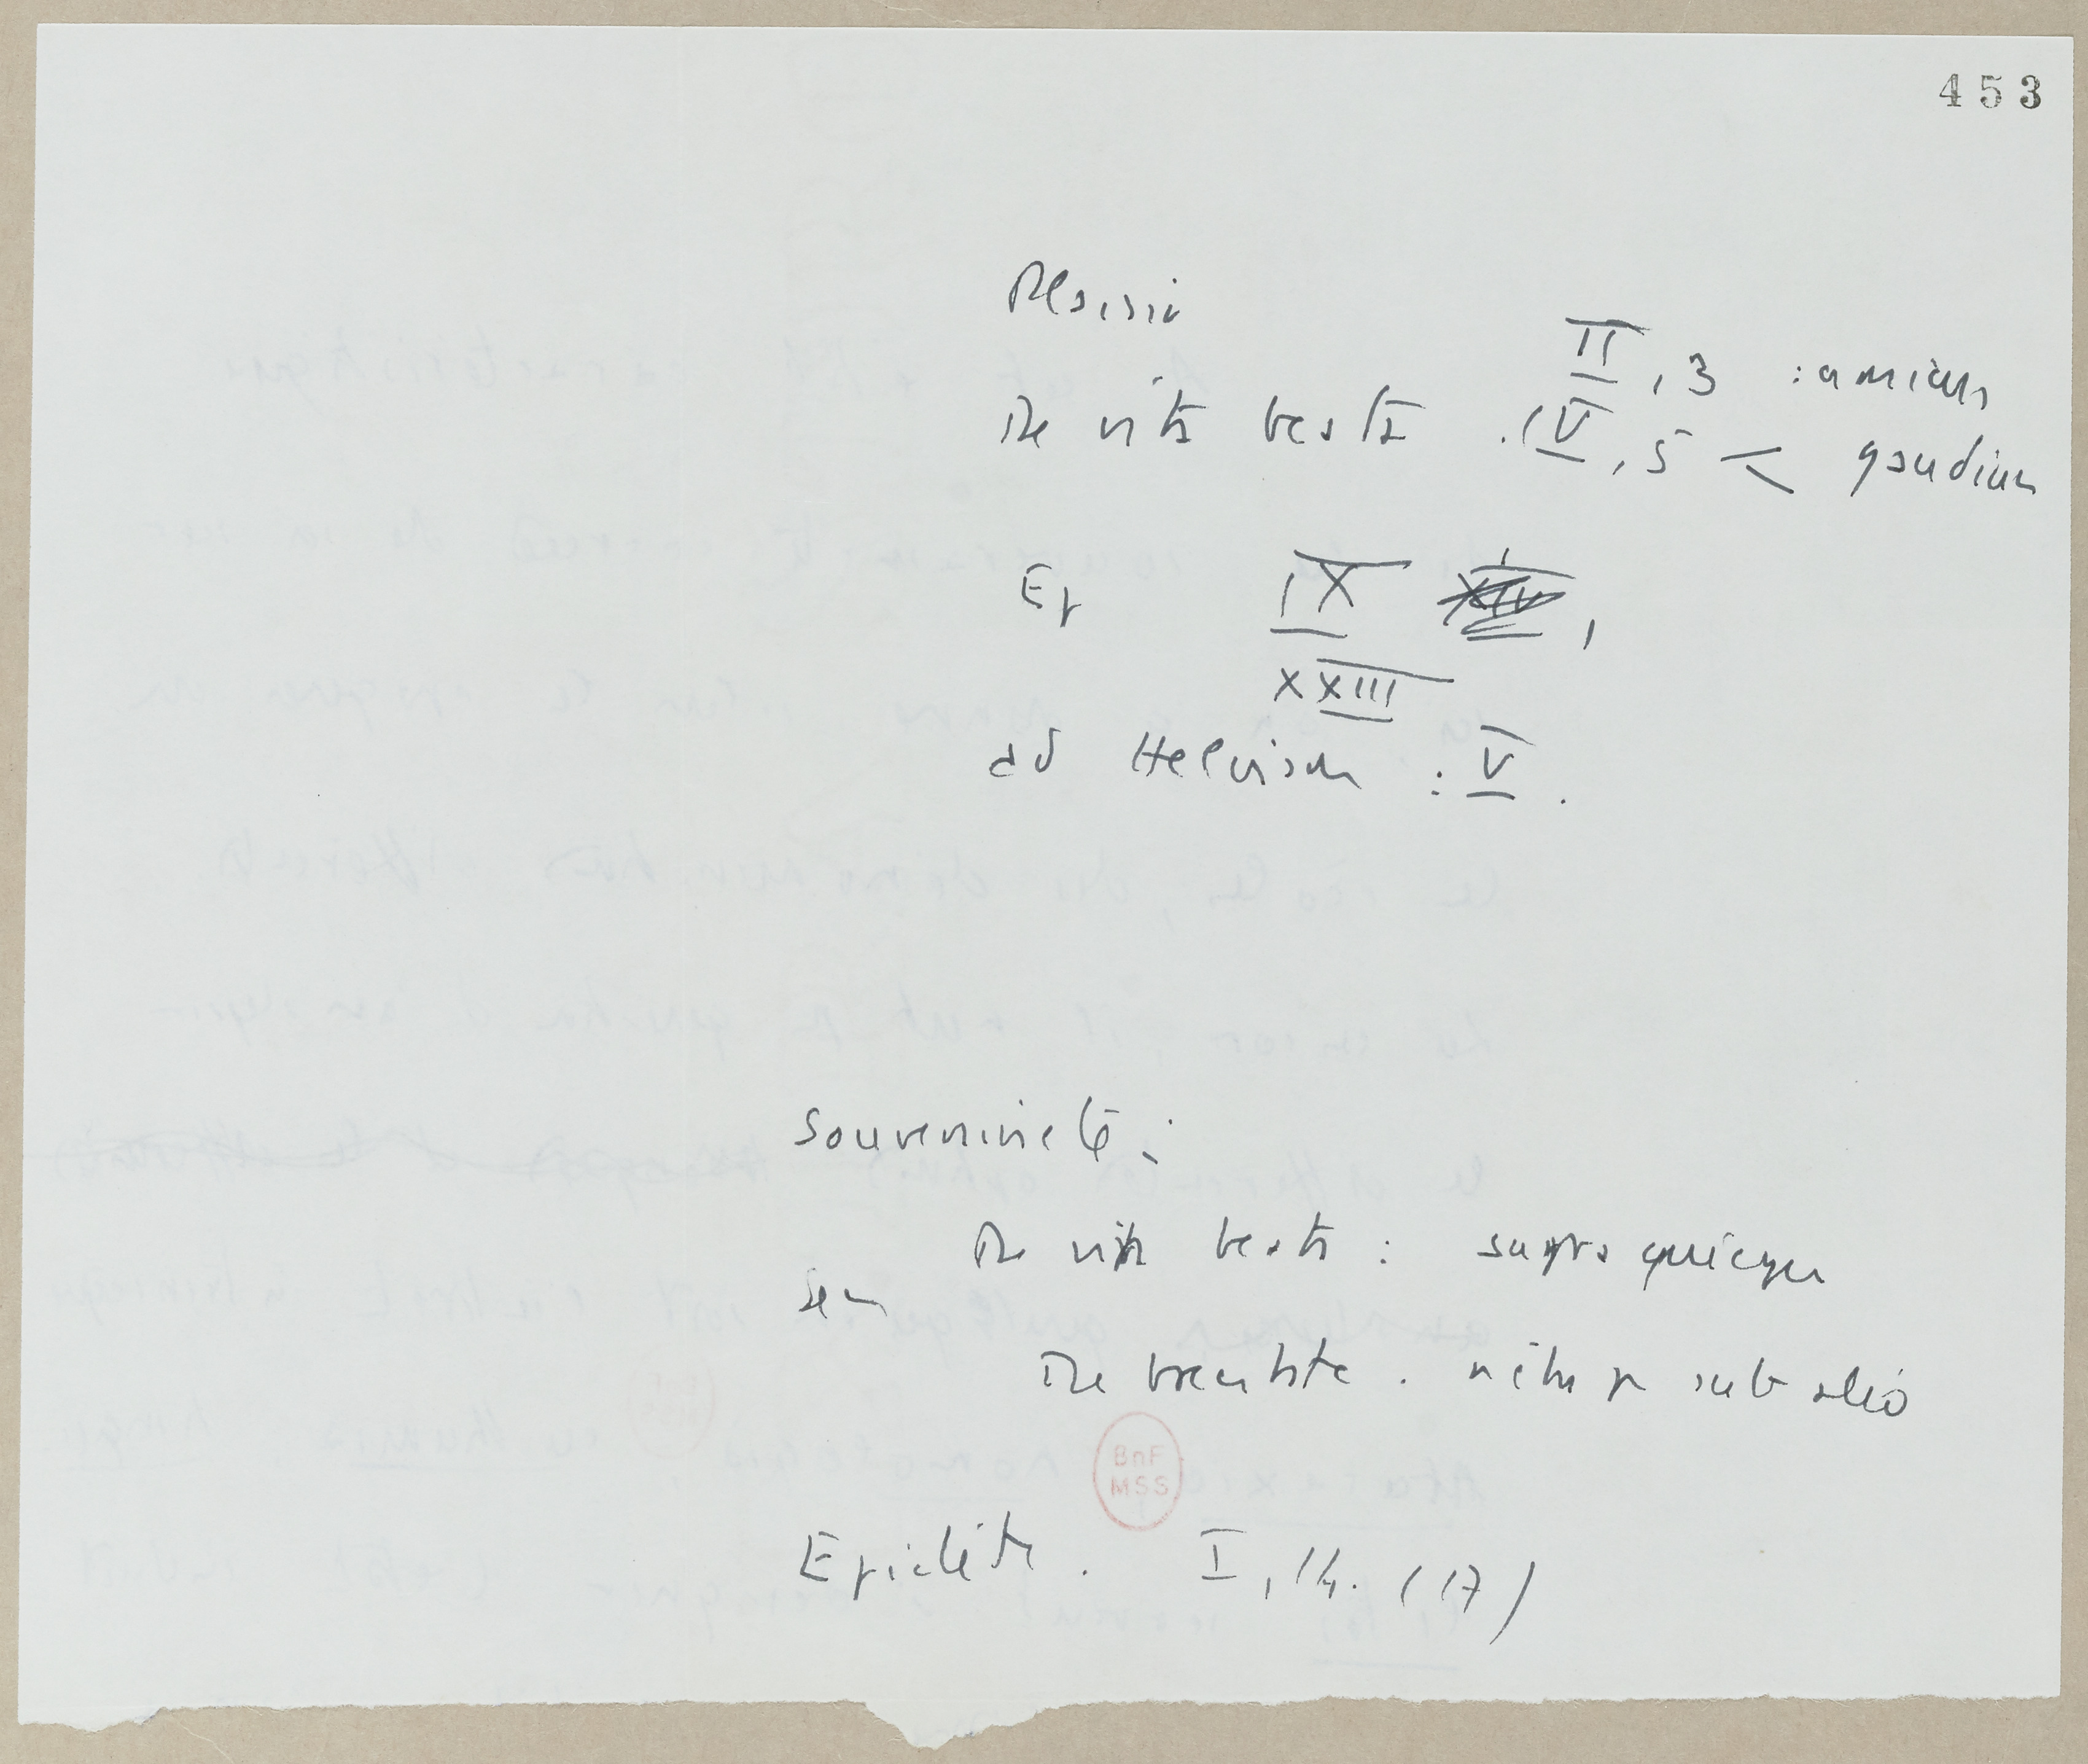 453
Plaisir
II, 3 : amicus
De vita beata . IV, 5 < gaudium
Ep IX XIV,
XXIII
ad Helviam : V.
Souveraineté :
De vita beata : supra quicqu
Sen
De brevitate . nihil sub alio
BnF
MSS
Epictète . I, 14. (17)